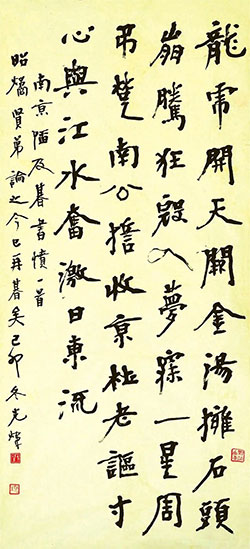 龍虎開天闕金湯擁石頭
崩騰狂寇入夢寐一星周
楚南公收京杜老謳寸
心與江水奮激日東流
南京陷及朞書憤一首
昭燏賢弟論之今已再朞矣己卯冬光煒